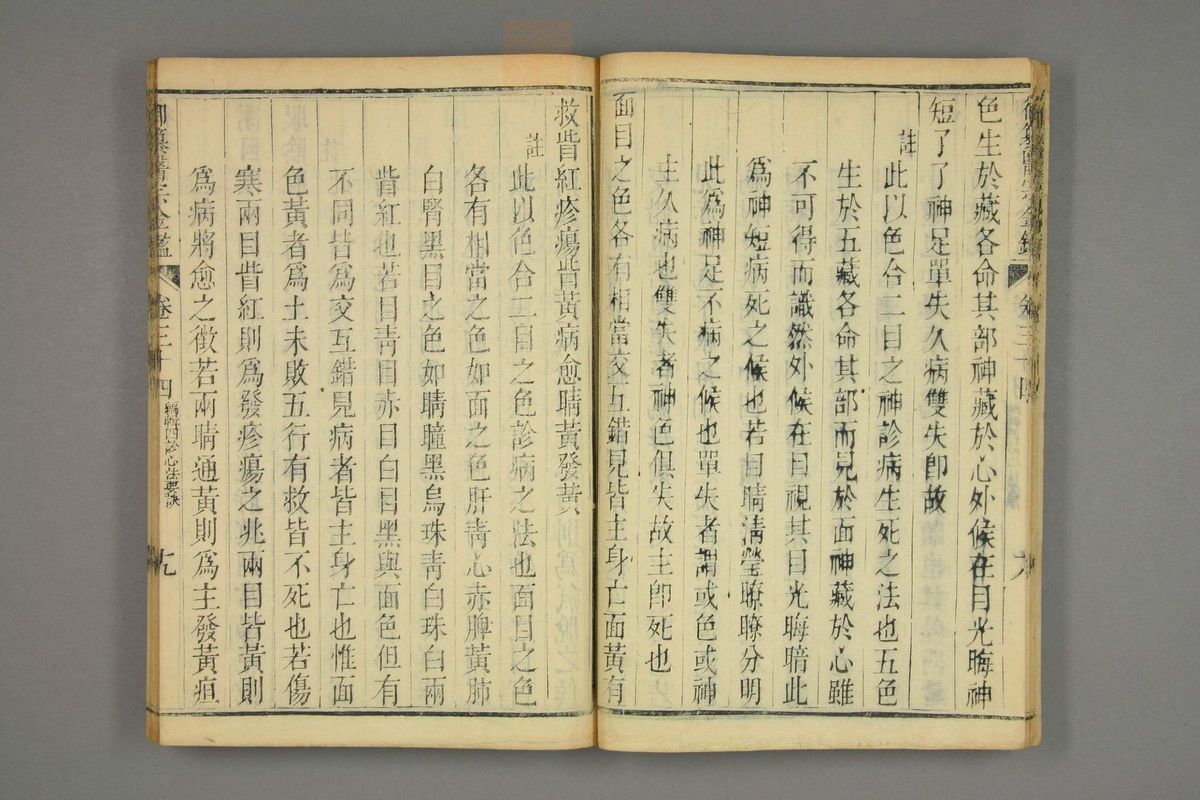 御纂醫宗金鑑 卷三十四 八
色生於藏各命其部神藏於心外候在目光晦神
短了了神足單失久病雙失卽故
註
此以色合二目之神診病生死之法也五色
生於五藏各命其部而見於面神藏於心雖
不可得而識然外候在目視其目光晦暗此
爲神短病死之候也若目睛淸瑩瞭瞭分明
此爲神足不病之候也單失者謂或色或神
主久病也雙失者神色俱失故主卽死也
面目之色各有相當交互錯見皆主身亡面黃有
救眥紅疹瘍眥黃病愈睛黃發黃
註
此以色合二目之色診病之法也面目之色
各有相當之色如面之色肝靑心赤脾黃肺
白腎黑目之色如睛瞳黑烏珠靑白珠白兩
眥紅也若目靑目赤目白目黑與面色但有
不同皆爲交互錯見病者皆主身亡也惟面
色黃者爲土未敗五行有救皆不死也若傷
寒兩目眥紅則爲發疹瘍之兆兩目眥黃則
爲病將愈之徵若兩睛通黃則爲主發黃疸
御纂醫宗金鑑 卷三十四 編輯四診心法要訣 九